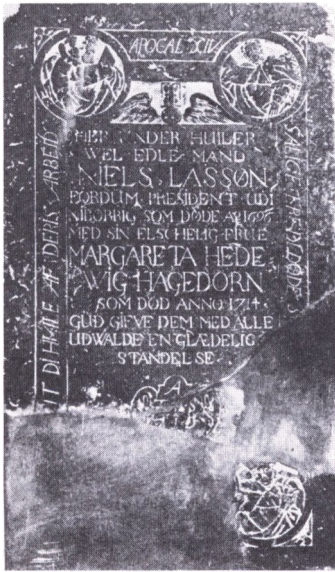 APOCAL XIV
HER UNDER HUILER
WEL EDLE MAND
NIELS LASSØN
FORDUM PRESIDENT UDI
SOM DØDE A 1695
MED SIN ELSCHELIG FRUE
MARGARETA HEDE
WIG HAGEDORN
SOM DØD ANNO 1714
GUD GIFVE DEM MED ALLE
UDWALDE EN GLÆDELIG
STANDELSE
SALIGE ERE DE DØDE
AT DI HUILE AF DERIS ARBEID